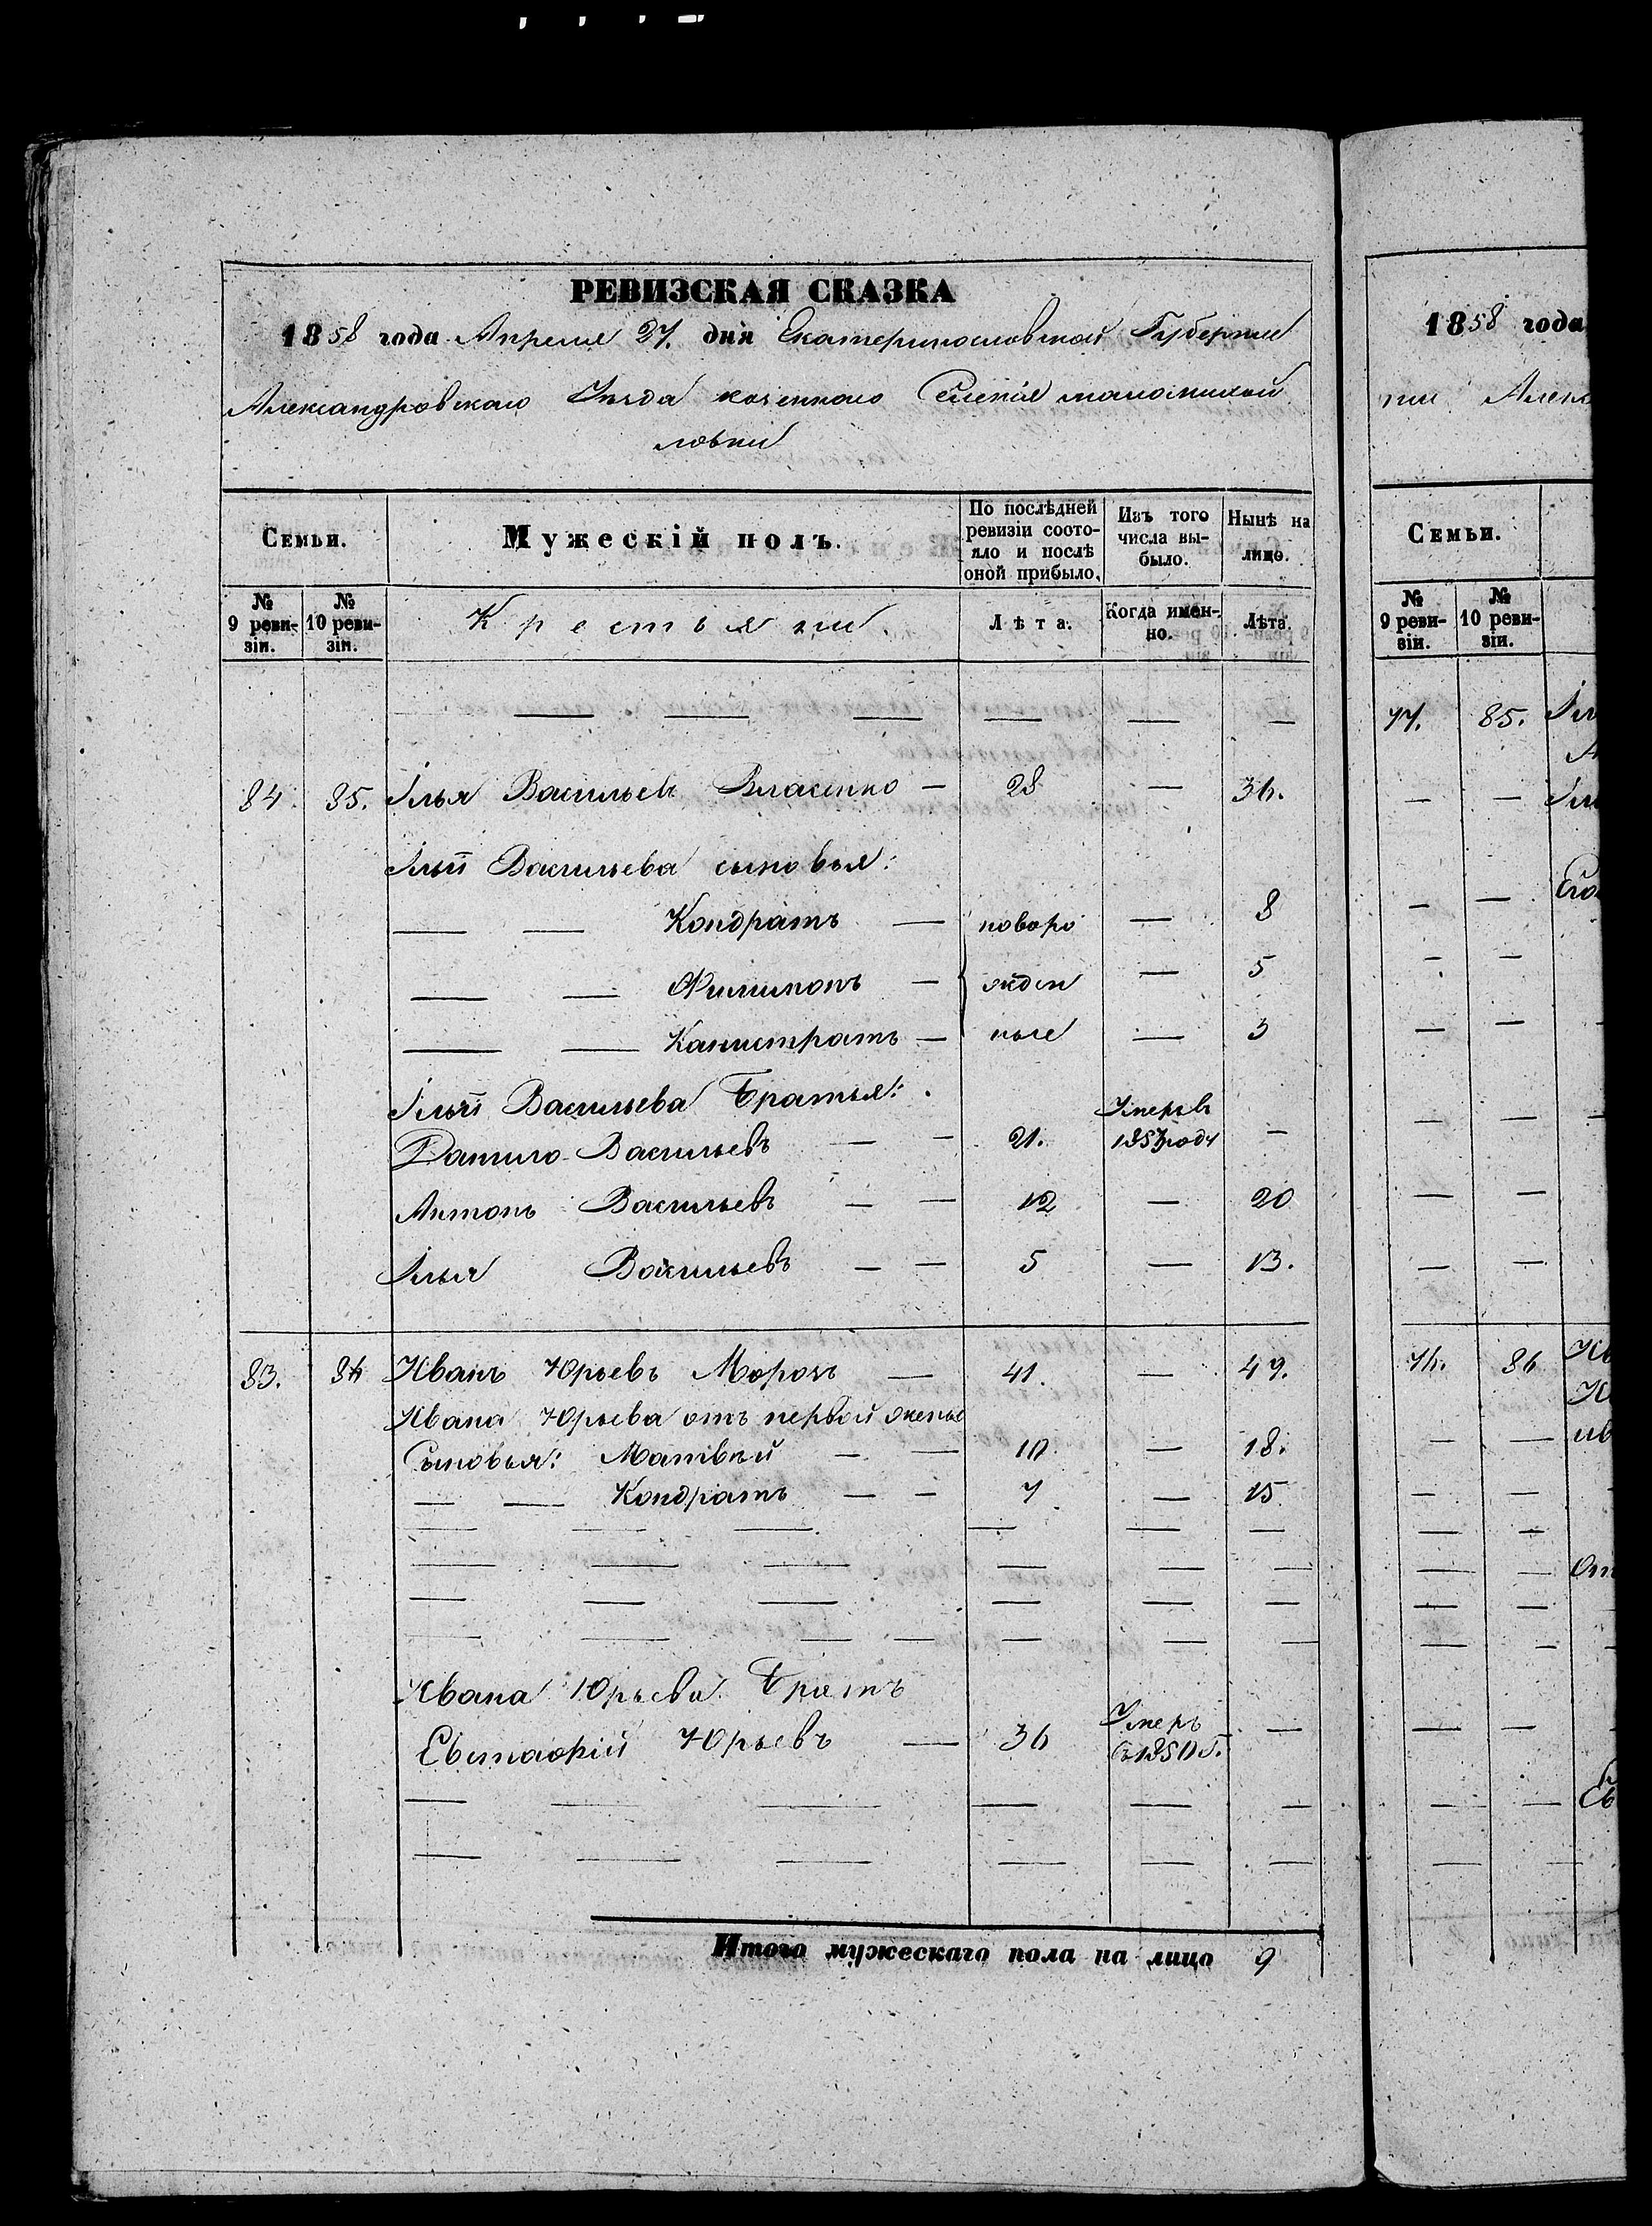 РЕВИЗСКАЯ СКАЗКА
1858 года Апреля 27. дня Екатеринославской Губернии
Александровскаго Уѣзда казеннаго Селенія маломихай
ловки
Семьи.
Мужескій полъ.
По послѣдней ревизіи состо-
яло и послѣ
оной прибыло.
Изъ того
числа вы-
было.
Нынѣ на
лицо.
№
9 реви-
зіи.
№
10 реви-
зіи.
Крестьяни.
Лѣта.
Когда имен-
но.
Лѣта.
84. 85. Илья Васильевъ Власенко — 28 — 36.
Ильи Васильева сыновья:
— — Кондратъ — новоро — 8
— — Филимонъ — жден — 5
— — Каниcтратъ — ные — 3
Ильи Васильева Братья:
Данило Васильевъ — — 21. Умеръ въ 1857 году —
Антонъ Васильевъ — — 12 — 20
Илья Васильевъ — — 5 — 13.
83. 86 Иванъ Юрьевъ Морозъ — 41. — 49.
Ивана Юрьева отъ первой жены
Сыновья: Матвѣй — — 10. — 18.
— — Кондратъ — — 7 — 15
Ивана Юрьева Братъ
Евстафій Юрьевъ — 36 Умеръ въ 1850 г. —
Итого мужескаго пола на лицо 9
1858 года
нии Алекс
Семьи.
№
9 реви-
зіи.
№
10 реви-
зіи.
77. 85.
76. 86